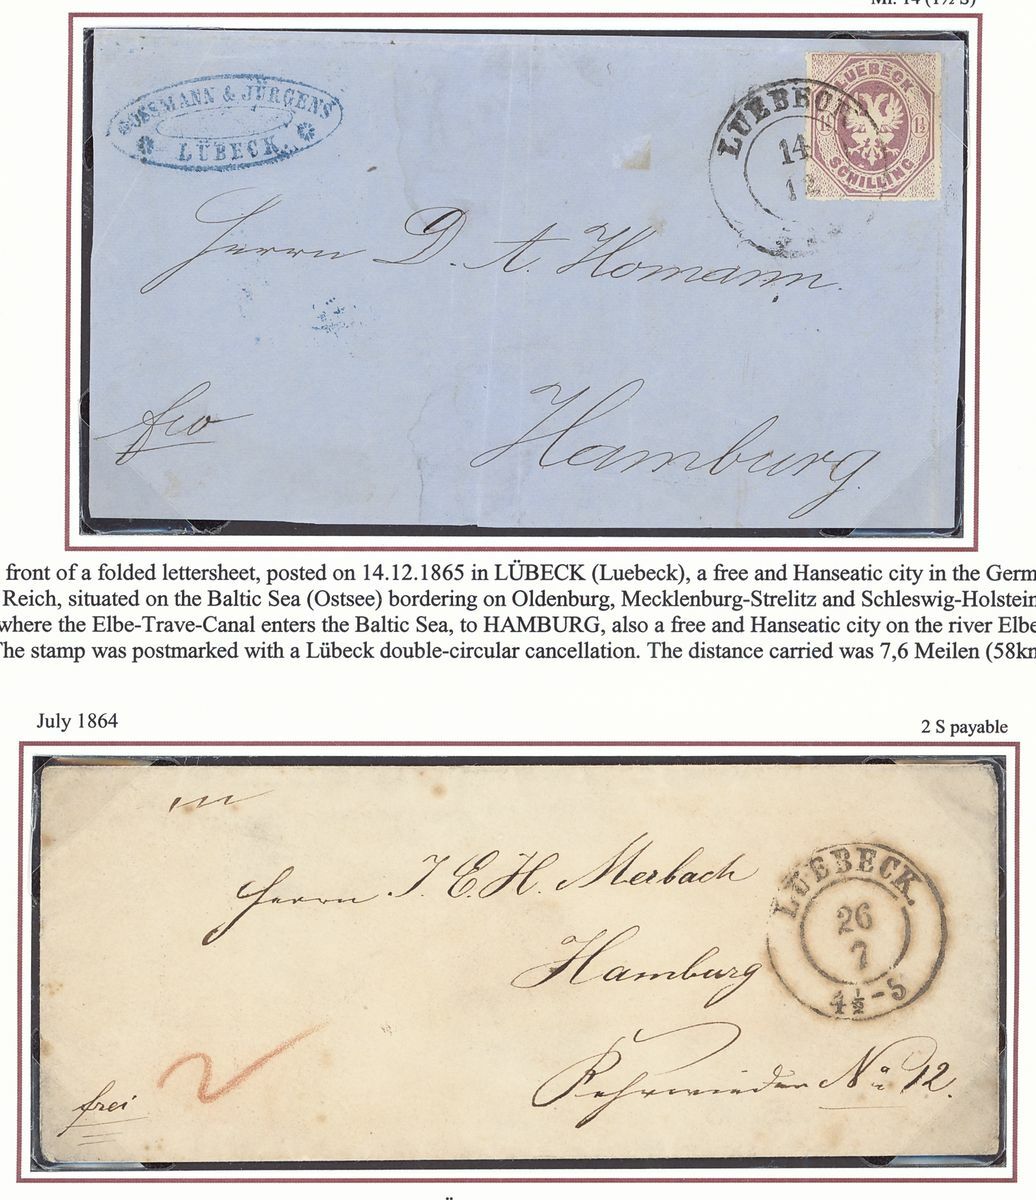 Mi. 14 (1½ S)
& JÜRGENS
LÜBECK.
LUEBECK
14
12
LUEBECK
1½ 1½
SCHILLING
Herrn D. A. Homann.
fco
Hamburg.
front of a folded lettersheet, posted on 14.12.1865 in LÜBECK (Luebeck), a free and Hanseatic city in the Germ
Reich, situated on the Baltic Sea (Ostsee) bordering on Oldenburg, Mecklenburg-Strelitz and Schleswig-Holstein
where the Elbe-Trave-Canal enters the Baltic Sea, to HAMBURG, also a free and Hanseatic city on the river Elbe
The stamp was postmarked with a Lübeck double-circular cancellation. The distance carried was 7,6 Meilen (58km
July 1864
2 S payable
Herrn J. E. H. Merbach
Hamburg
LUEBECK.
26
7
4½-5
2
frei
Kehrwieder No 12.